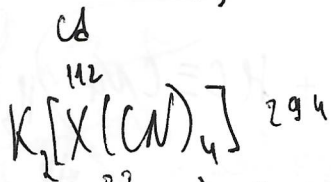 Cd
112
K₂[X(CN)₄] 294